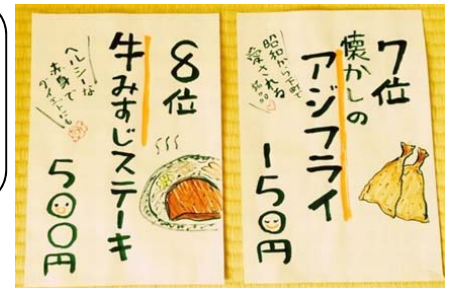 7位
懐かしの
アジフライ
昭和から下町で
愛される
150円
8位
牛みすじステーキ
ヘルシーな
赤身で
ダイエットに
500円